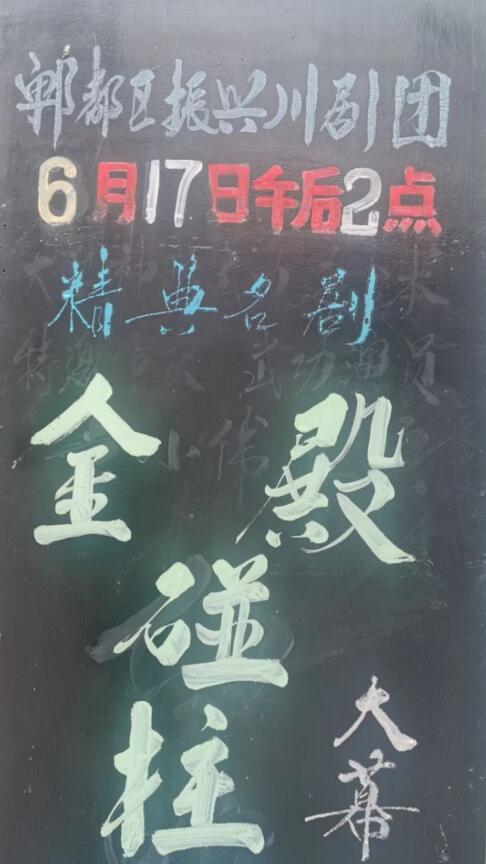 郫都区振兴川剧团
6月17日午后2点
精典名剧
金殿
碰
柱
大幕